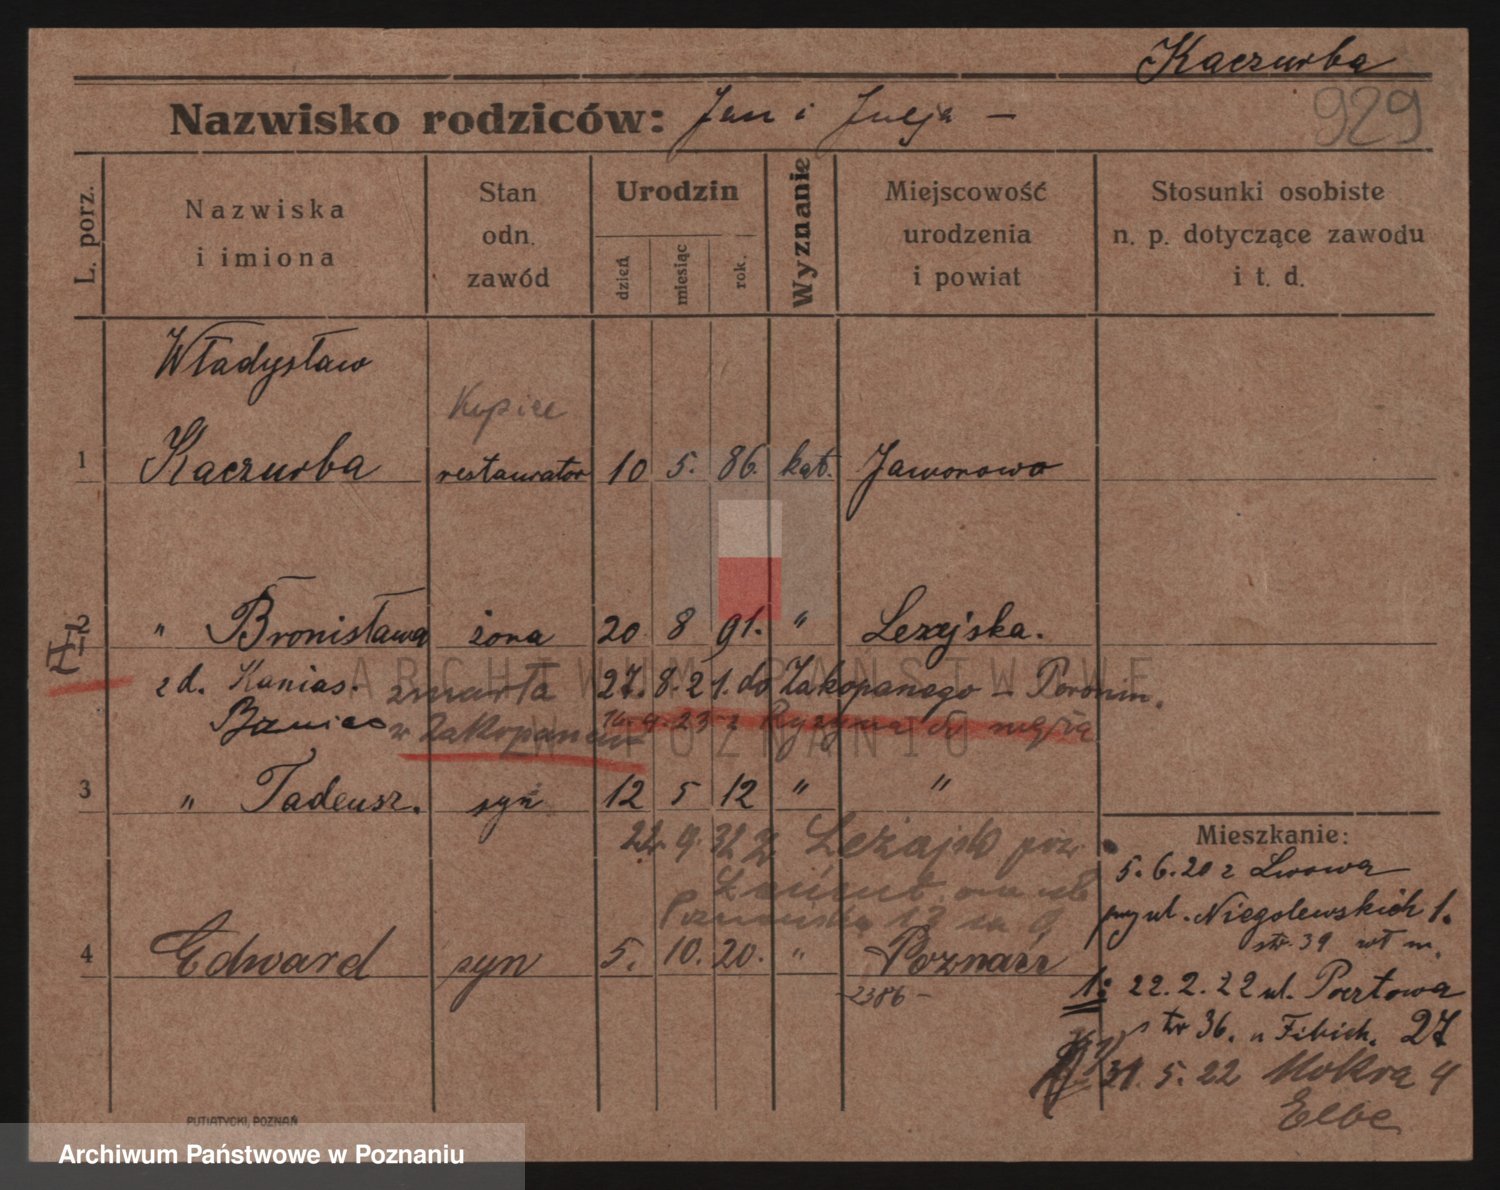 Kaczurba
Nazwisko rodziców: Jan i Julja —
929
L. porz.
Nazwiska
i imiona
Stan
odn.
zawód
Urodzin
dzień
miesiąc
rok.
Wyznanie
Miejscowość
urodzenia
i powiat
Stosunki osobiste
n. p. dotyczące zawodu
i t. d.
Władysław
Kupiec
1 Kaczurba restaurator 10 5. 86. kat. Jaworowo
2 " Bronisława żona 20 8 91. "
II
z d. Kanias. zmarła 27. 8. 21. do Zakopanego — Poronin.
w Zakopanem 9. 23 z
3 " Tadeusz. syn 12 5 12 " "
22. 9. 32 z Leżajsk
13 m 9
4 Edward syn 5. 10. 20. " Poznań
-2386-
Mieszkanie:
5. 6. 20 z Lwowa
przy ul. Niegolewskich 1.
str. 39 wł m.
1: 22. 2. 22 ul. Pocztowa
str 36. u Fibich. 27
31. 5. 22 Mokra 4
Elbe
PUTIATYCKI, POZNAŃ
ARCHIWUM PAŃSTWOWE
W POZNANIU
Archiwum Państwowe w Poznaniu